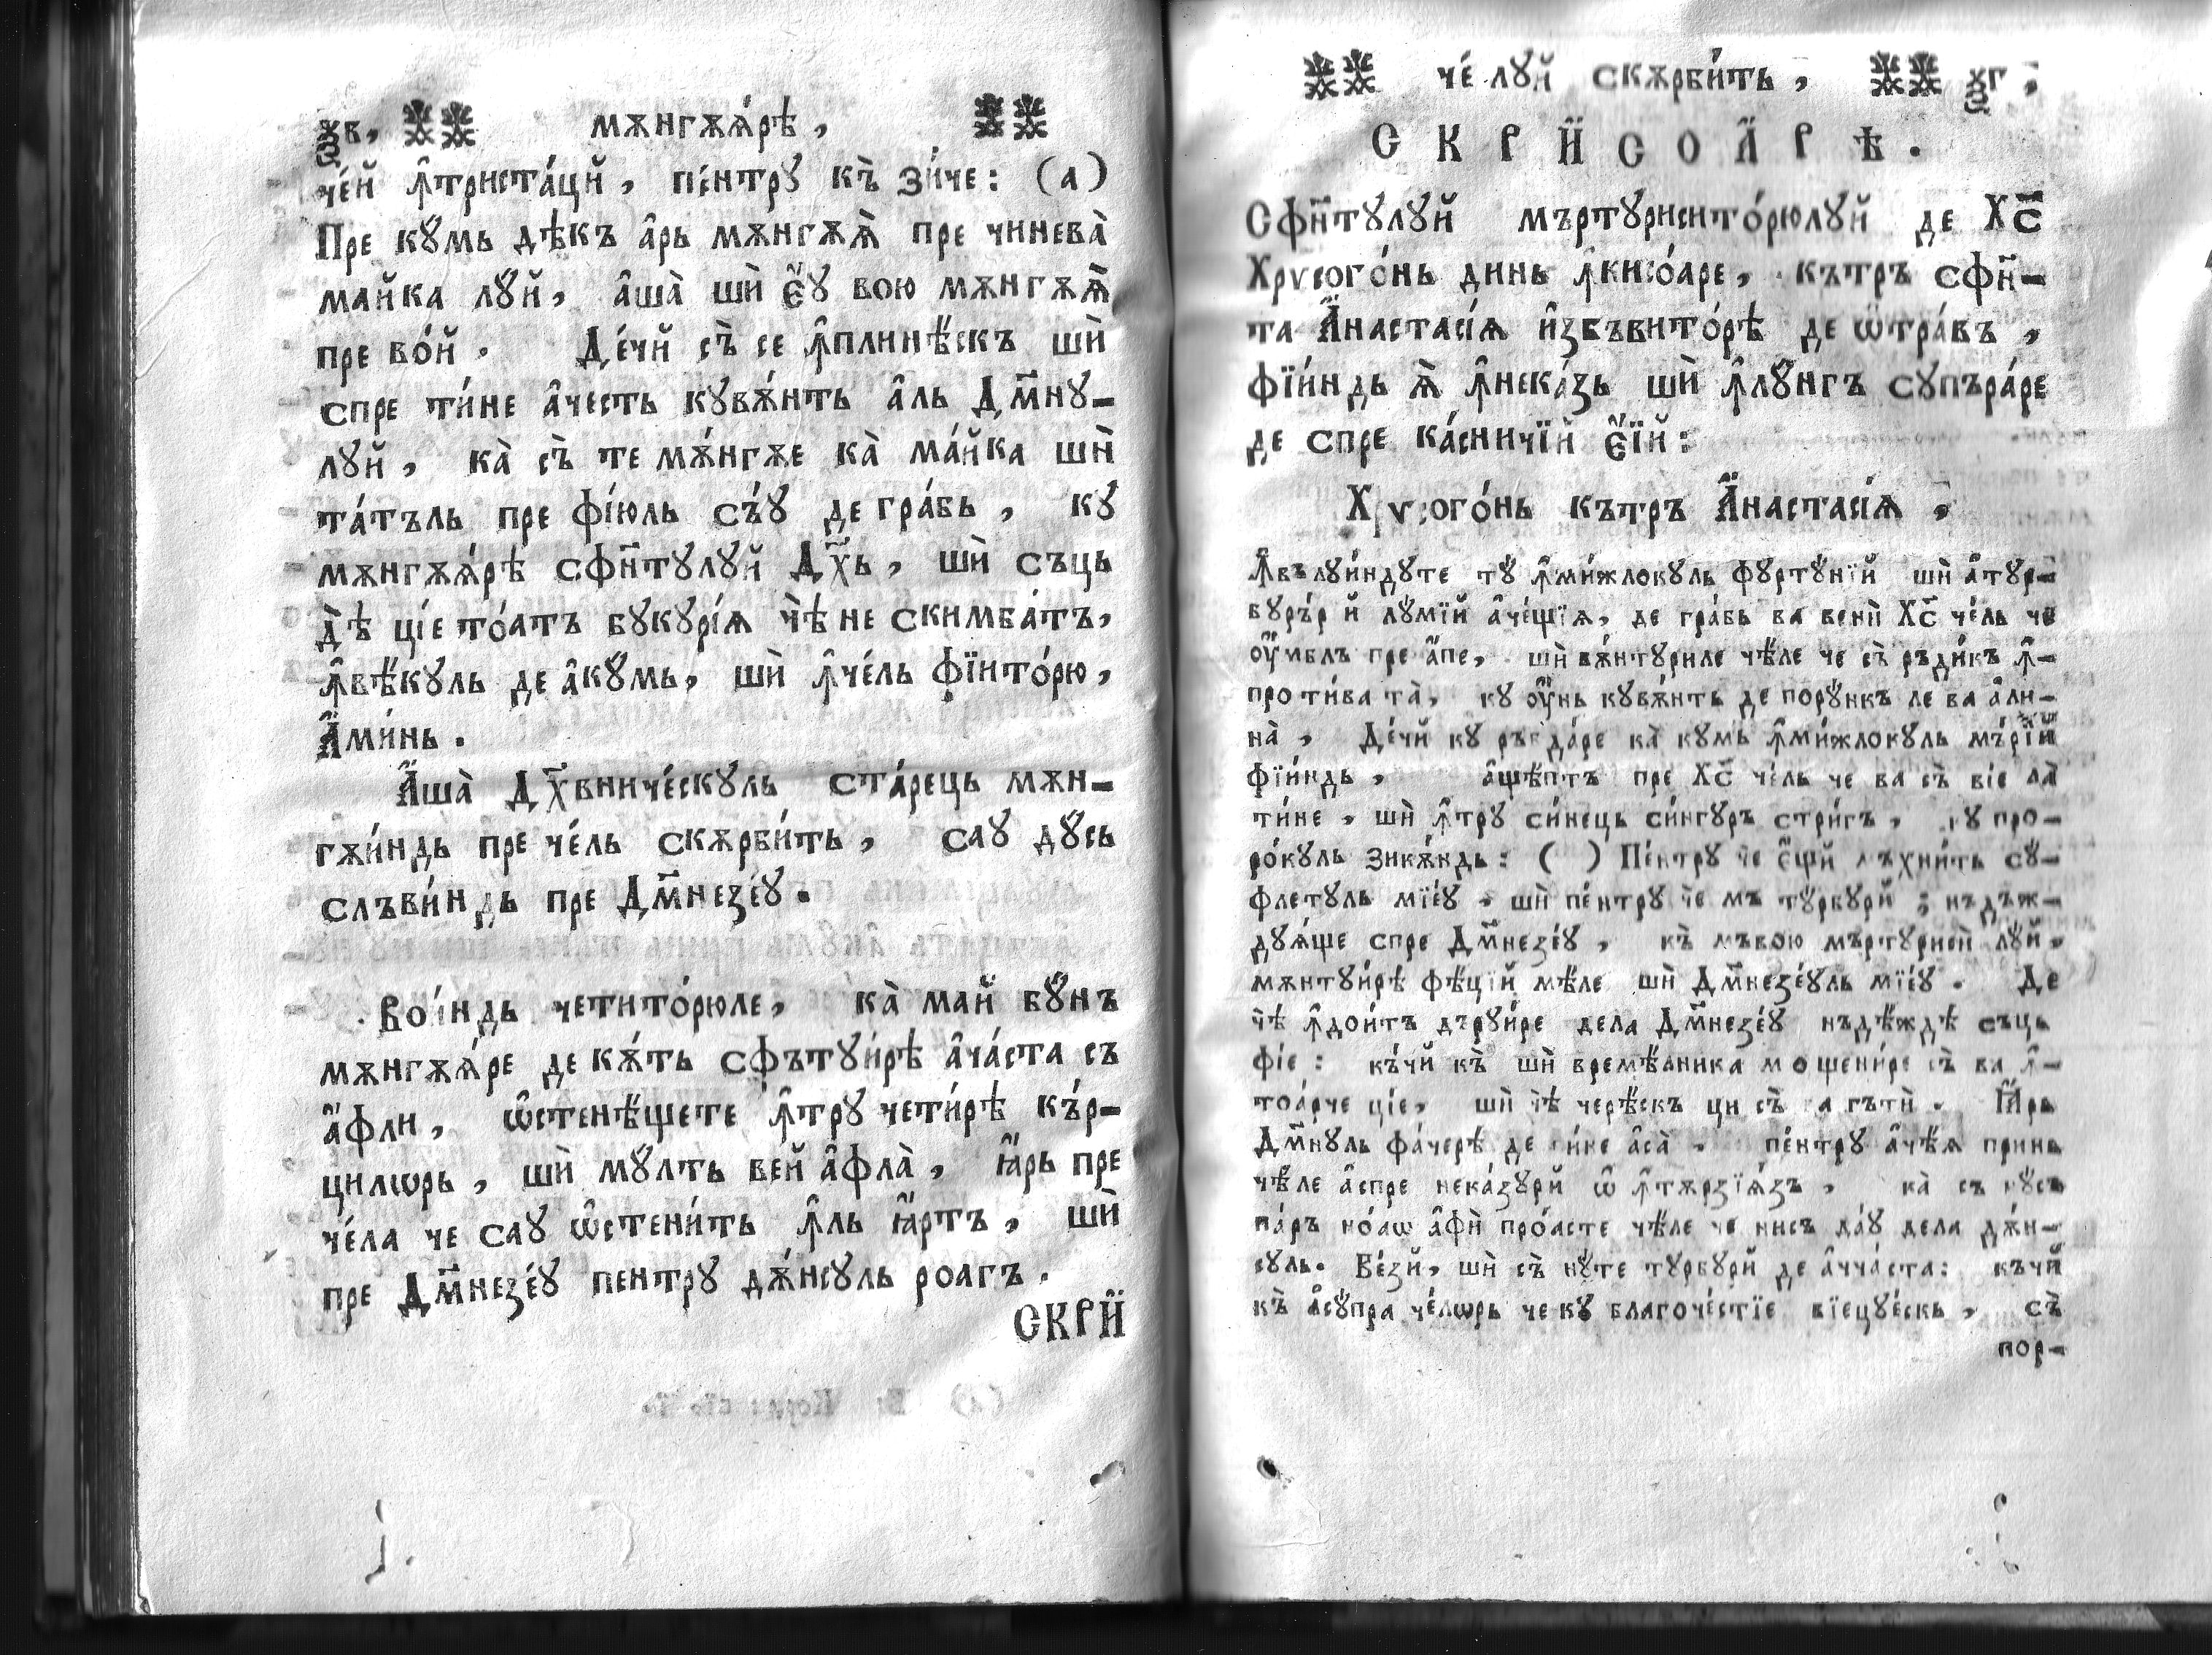 ѯв, мѫнгѫѧ́рѣ,
че́й ꙟ҆триста́цй, пе́нтрꙋ къ зи́че: (а)
Пре кꙋ́мь дѣ́къ а҆рь мѫнгѫѧ̀ пре чинева̀
майка лꙋ́й, а҆ша̀ шѝ є҆́ꙋ вою мѫнгѫѧ̀
пре во́й. Де́чй съ̀ се ꙟ҆плинѣ́скъ шѝ
спре ти́не а҆честь кꙋвѫ́нть а҆ль Дм҃нꙋ-
лꙋй, ка̀ съ̀ те мѫ́нгѫе ка̀ ма́йка шѝ
та́тъль пре фі́юль съ́ꙋ де гра́бь, кꙋ
мѫнгѫѧ́рѣ сфн҃тꙋлꙋй Дх҃ь, шѝ съць
дѣ̀ ціе то́атъ бꙋкꙋрі́ѧ чѣ̀ не скимба́тъ,
ꙟ҆вѣ́кꙋль де а҆кꙋ́мь, шѝ ꙟ҆че́ль фїито́рю,
А҆ми́нь.
А҆ша̀ Дх҃вниче́скꙋль ста́рець мѫн-
гѫи́ндь пре че́ль скѫрби́ть, саꙋ дꙋ́сь
слъви́ндь пре Дм҃незе́ꙋ.
Вои́ндь четито́рюле, ка̀ май бꙋ́нъ
мѫнгѫѧ́ре де кѫ́ть сфътꙋи́рѣ а҆ча́ста съ
а҆́фли, ѡ҆стенѣ́ще те ꙟ҆трꙋ чети́рѣ къ́р-
цилѡрь, шѝ мꙋ́лть вей а҆фла̀, ꙗ҆́рь пре
че́ла че саꙋ ѡ҆стени́ть ꙟ҆ль ꙗ҆́ртъ, шѝ
пре Дм҃незе́ꙋ пентрꙋ дѫ́нсꙋль роагъ.
СКРЙ
че́ лꙋй скѫрби́ть, ѯг,
СКРЙСОА҆РѢ.
Сфн҃тꙋлꙋй мъртꙋрисито́рюлꙋй де Хс҃
Хрѵсого́нь динь ꙟ҆кисо́аре, кътръ сфн҃-
та А҆настасі́ѧ и҆збъвито́рѣ де ѿтра́въ,
фїи́ндь ѧ҆̀ ꙟ҆неказь шѝ ꙟ҆лꙋ́нгъ сꙋпъра́ре
де спре ка́сничїй є҆́їй:
Хрѵсого́нь кътръ А҆настасі́ѧ,
ꙟ҆вълꙋи́ндꙋте тꙋ̀ ꙟ҆ми́жлокꙋль фꙋртꙋ́нїй шѝ а҆тꙋр-
бꙋръ́рй лꙋ́мїй а҆че́щїѧ, де гра́бь ва венѝ Хс҃ че́ль че
ᲂу҆́мблъ пре а҆́пе, шѝ вѫ́нтꙋриле чѣ́ле че съ̀ ръди́къ ꙟ҆-
проти́ва та̀, кꙋ ᲂу҆́нь кꙋвѫ́нть де порꙋ́нкъ ле ва а҆ли-
на̀, Де́чй кꙋ ръбда́ре ка̀ кꙋмь ꙟ҆ми́жлокꙋль мъ́рїй
фїи́ндь, а҆щѣ́птъ пре Хс҃ че́ль че ва съ̀ віе ла̀
ти́не, шѝ ꙟ҆трꙋ си́нець си́нгꙋръ стри́гъ, кꙋ про-
ро́кꙋль зикѫ́ндь: ( ) Пе́нтрꙋ че є҆́щй мъхни́ть сꙋ́-
флетꙋль мїе́ꙋ, шѝ пе́нтрꙋ че мъ тꙋ́рбꙋрй; нъдъж-
дꙋѧ́ще спре Дм҃незе́ꙋ, къ мъвою мъртꙋрисѝ лꙋ́й,
мѫнтꙋи́рѣ фѣ́цїй мѣ́ле шѝ Дм҃незе́ꙋль мїе́ꙋ. Де
чѣ̀ ꙟ҆дои́тъ дърꙋи́ре дела Дм҃незе́ꙋ нъдѣ́ждѣ съць
фі́е: къ́чй къ шѝ времѣ́лника мощени́ре съ̀ ва ꙟ҆-
тоа́рче ціе, шѝ чѣ̀ черѣ́скъ ци съ̀ ва гътѝ. Ꙗ҆́рь
Дм҃нꙋль фа́черѣ де бине а҆са̀, пе́нтрꙋ а҆чѣ́ѧ принь
чѣ́ле а҆спре нека́зꙋрй ѡ҆ ꙟ҆тѫрзїѧ́зъ, ка̀ съ нꙋ́съ
па́ръ но́аѡ а҆фѝ про́асте чѣ́ле че нисъ да́ꙋ дела дѫ́н-
сꙋль. Ве́зй, шѝ съ̀ нꙋте тꙋ́рбꙋрй де а҆чча́ста: къ́чй
къ̀ а҆сꙋ́пра че́лѡрь че кꙋ благоче́стїе вїецꙋе́скь, съ̀
пор-